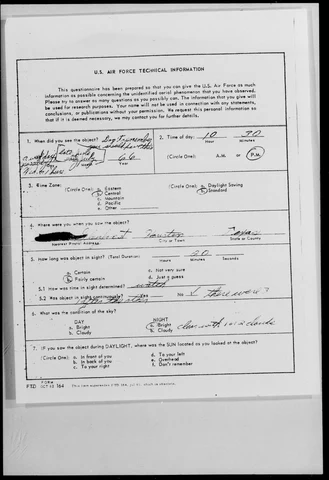 U.S. AIR FORCE TECHNICAL INFORMATION
This questionnaire has been prepared so that you can give the U.S. Air Force as much
information as possible concerning the unidentified aerial phenomenon that you have observed.
Please try to answer as many questions as you possibly can. The information that you give will
be used for research purposes. Your name will not be used in connection with any statements,
conclusions, or publications without your permission. We request this personal information so
that if it is deemed necessary, we may contact you for further details.
1. When did you see the object?
66
2. Time of day: 10 30
Hour Minutes
(Circle One): A.M. or P.M.
3. Time Zone:
(Circle One): a. Eastern
b. Central
c. Mountain
d. Pacific
e. Other
(Circle One): a. Daylight Saving
b. Standard
4. Where were you when you saw the object?
Houston Texas
Nearest Postal Address City or Town State or County
5. How long was object in sight? (Total Duration) 20
Hours Minutes Seconds
a. Certain c. Not very sure
b. Fairly certain d. Just a guess
5.1 How was time in sight determined? watch
5.2 Was object in sight continuously? Yes No there were?
6. What was the condition of the sky?
DAY NIGHT
a. Bright a. Bright
b. Cloudy b. Cloudy
7. IF you saw the object during DAYLIGHT, where was the SUN located as you looked at the object?
(Circle One): a. In front of you d. To your left
b. In back of you e. Overhead
c. To your right f. Don't remember
FORM
FTD OCT 62 164